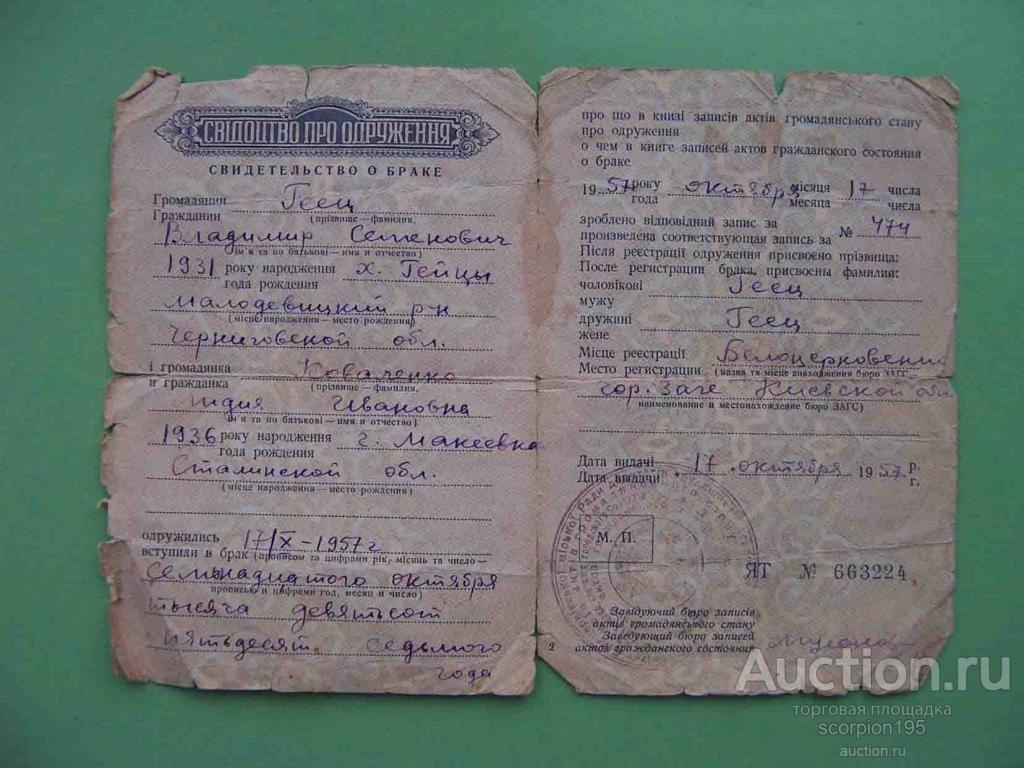 СВІДОЦТВО ПРО ОДРУЖЕННЯ
СВИДЕТЕЛЬСТВО О БРАКЕ
Громадянин Геец
Гражданин
(прізвище — фамилия,
Владимир Семенович
ім'я та по батькові — имя и отчество)
1931 року народження х. Гейцы
года рождения
Малодевицкий р-н
(місце народження — место рождения)
Черниговской обл.
і громадянка Коваленко
и гражданка
(прізвище — фамилия,
Ивановна
ім'я та по батькові — имя и отчество)
1936 року народження г. Макеевка
года рождения
Сталинской обл.
(місце народження — место рождения)
одружились 17/X - 1957 г
вступили в брак (прописом та цифрами рік, місяць та число —
Семьнадцатого октября
прописью и цифрами год, месяц и число)
тысяча девятьсот
пятьдесят седьмого
года
про що в книзі записів актів громадянського стану
про одруження
о чем в книге записей актов гражданского состояния
о браке
1957 року октября місяця 17 числа
года месяца числа
зроблено відповідний запис за
произведена соответствующая запись за № 474
Після реєстрації одруження присвоєно прізвища:
После регистрации брака, присвоены фамилии:
чоловікові Геец
мужу
дружині Геец
жене
Місце реєстрації Белоцерковский
Место регистрации (назва та місце знаходження бюро ЗАГС —
гор. Загс Киевской обл
наименование и местонахождение бюро ЗАГС)
Дата видачі 17 октября 1957 р.
Дата выдачи г.
М. П.
ЯТ № 663224
Завідуючий бюро записів
актів громадянського стану
Заведующий бюро записей
актов гражданского состояния
2
Auction.ru
торговая площадка
scorpion195
auction.ru